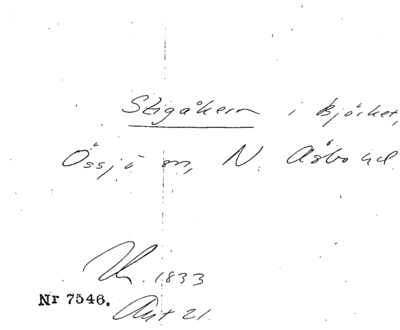 Stigåkern i Björket,
Össjö sn, N. Åsbo hd.
1833
Nr 7546.
Akt 21.